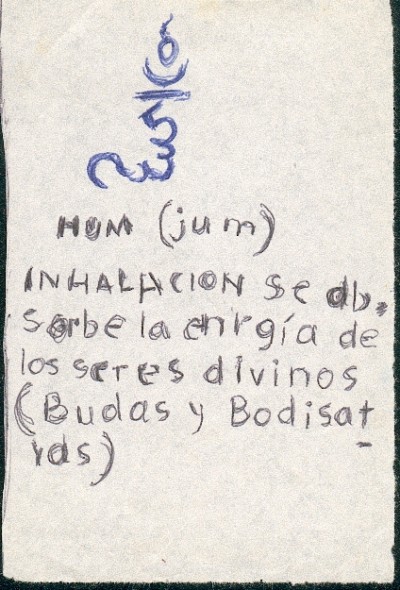 HUM (jum)
INHALACION se ab-
sorbe la enrgía de
los seres divinos
(Budas y Bodisat-
vas)